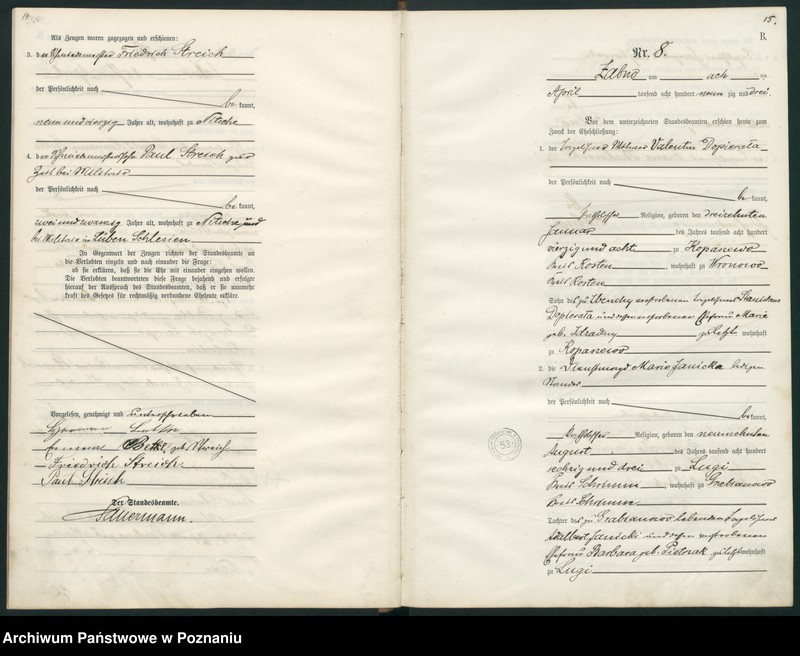 14.
Als Zeugen waren zugezogen und erschienen:
3. der Schneidermeister Friedrich Streich
der Persönlichkeit nach
be kannt,
neun und vierzig Jahre alt, wohnhaft zu Nitsche
4. der Paul Streich zur
Zeit bei Militär
der Persönlichkeit nach
be kannt,
zwei und zwanzig Jahre alt, wohnhaft zu Nitsche und
bei Militär in Lüben Schlesien
In Gegenwart der Zeugen richtete der Standesbeamte an
die Verlobten einzeln und nach einander die Frage:
ob sie erklären, daß sie die Ehe mit einander eingehen wollen.
Die Verlobten beantworteten diese Frage bejahend und erfolgte
hierauf der Ausspruch des Standesbeamten, daß er sie nunmehr
kraft des Gesetzes für rechtmäßig verbundene Eheleute erkläre.
Vorgelesen, genehmigt und unterschrieben
geb. Streich
Friedrich Streich.
Paul Streich
Der Standesbeamte.
15.
B.
Nr. 8.
Żabno am ach en
April tausend acht hundert neun zig und drei.
Vor dem unterzeichneten Standesbeamten erschien heute zum
Zweck der Eheschließung:
1. der Valentin Dopierała
der Persönlichkeit nach
be kannt,
katholischer Religion, geboren den dreizehnten
Januar des Jahres tausend acht hundert
vierzig und acht zu Kopanewo
Kreis Kosten, wohnhaft zu Wronowo
Kreis Kosten
Sohn des zu verstorbenen Tagelöhners Stanislaus
Dopierała und dessen verstorbenen Ehefrau Marie
geb. zuletzt wohnhaft
zu Kopanewo
2. die Dienstmagd Maria Janicka ledigen
Standes
der Persönlichkeit nach
be kannt,
katholischer Religion, geboren den neunzehnten
August des Jahres tausend acht hundert
sechzig und drei zu Lugi
Kreis Schrimm, wohnhaft zu Grabianowo
Kreis Schrimm
Tochter des zu Grabianowo lebenden Tagelöhners
Adalbert Janicki und dessen verstorbenen
Ehefrau Barbara geb. Pietrzak zuletzt wohnhaft
zu Lugi
Archiwum Państwowe w Poznaniu